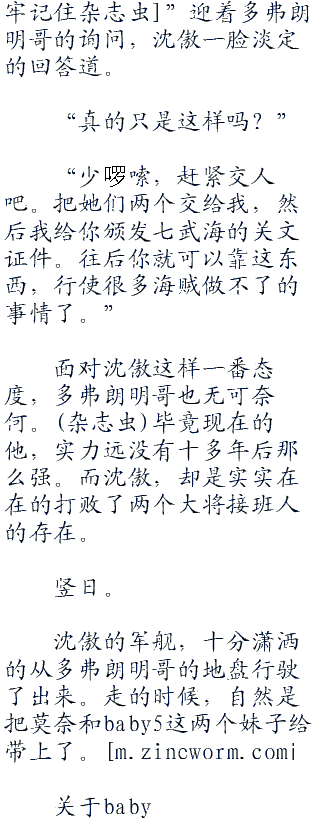 牢记住杂志虫]”迎着多弗朗
明哥的询问，沈傲一脸淡定
的回答道。
“真的只是这样吗？”
“少啰嗦，赶紧交人
吧。把她们两个交给我，然
后我给你颁发七武海的关文
证件。往后你就可以靠这东
西，行使很多海贼做不了的
事情了。”
面对沈傲这样一番态
度，多弗朗明哥也无可奈
何。(杂志虫)毕竟现在的
他，实力远没有十多年后那
么强。而沈傲，却是实实在
在的打败了两个大将接班人
的存在。
竖日。
沈傲的军舰，十分潇洒
的从多弗朗明哥的地盘行驶
了出来。走的时候，自然是
把莫奈和baby5这两个妹子给
带上了。[m.zincworm.com]
关于baby